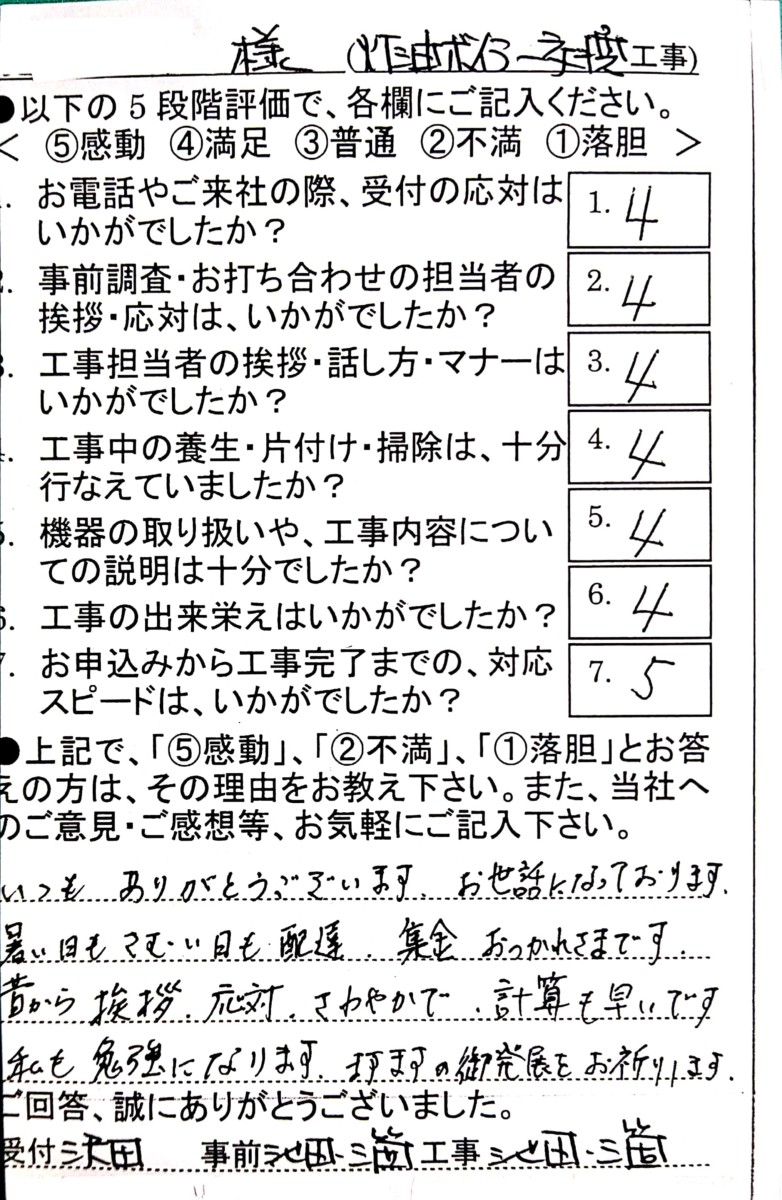 様 (灯油ボイラー交換工事)
●以下の5段階評価で、各欄にご記入ください。
< ⑤感動 ④満足 ③普通 ②不満 ①落胆 >
お電話やご来社の際、受付の応対は
いかがでしたか?
1. 4
2. 事前調査・お打ち合わせの担当者の
挨拶・応対は、いかがでしたか?
2. 4
3. 工事担当者の挨拶・話し方・マナーは
いかがでしたか?
3. 4
4. 工事中の養生・片付け・掃除は、十分
行なえていましたか?
4. 4
5. 機器の取り扱いや、工事内容につい
ての説明は十分でしたか?
5. 4
6. 工事の出来栄えはいかがでしたか?
6. 4
7. お申込みから工事完了までの、対応
スピードは、いかがでしたか?
7. 5
●上記で、「⑤感動」、「②不満」、「①落胆」とお答
えの方は、その理由をお教え下さい。また、当社へ
のご意見・ご感想等、お気軽にご記入下さい。
いつも ありがとうございます. お世話になっております.
暑い日も さむい日も 配達. 集金 おつかれさまです.
昔から 挨拶. 応対. さわやかで. 計算も早いです
私も 勉強になります. ますますの御発展を お祈りします.
ご回答、誠にありがとうございました。
受付 沢田 事前 池田・三箇 工事 池田・三箇